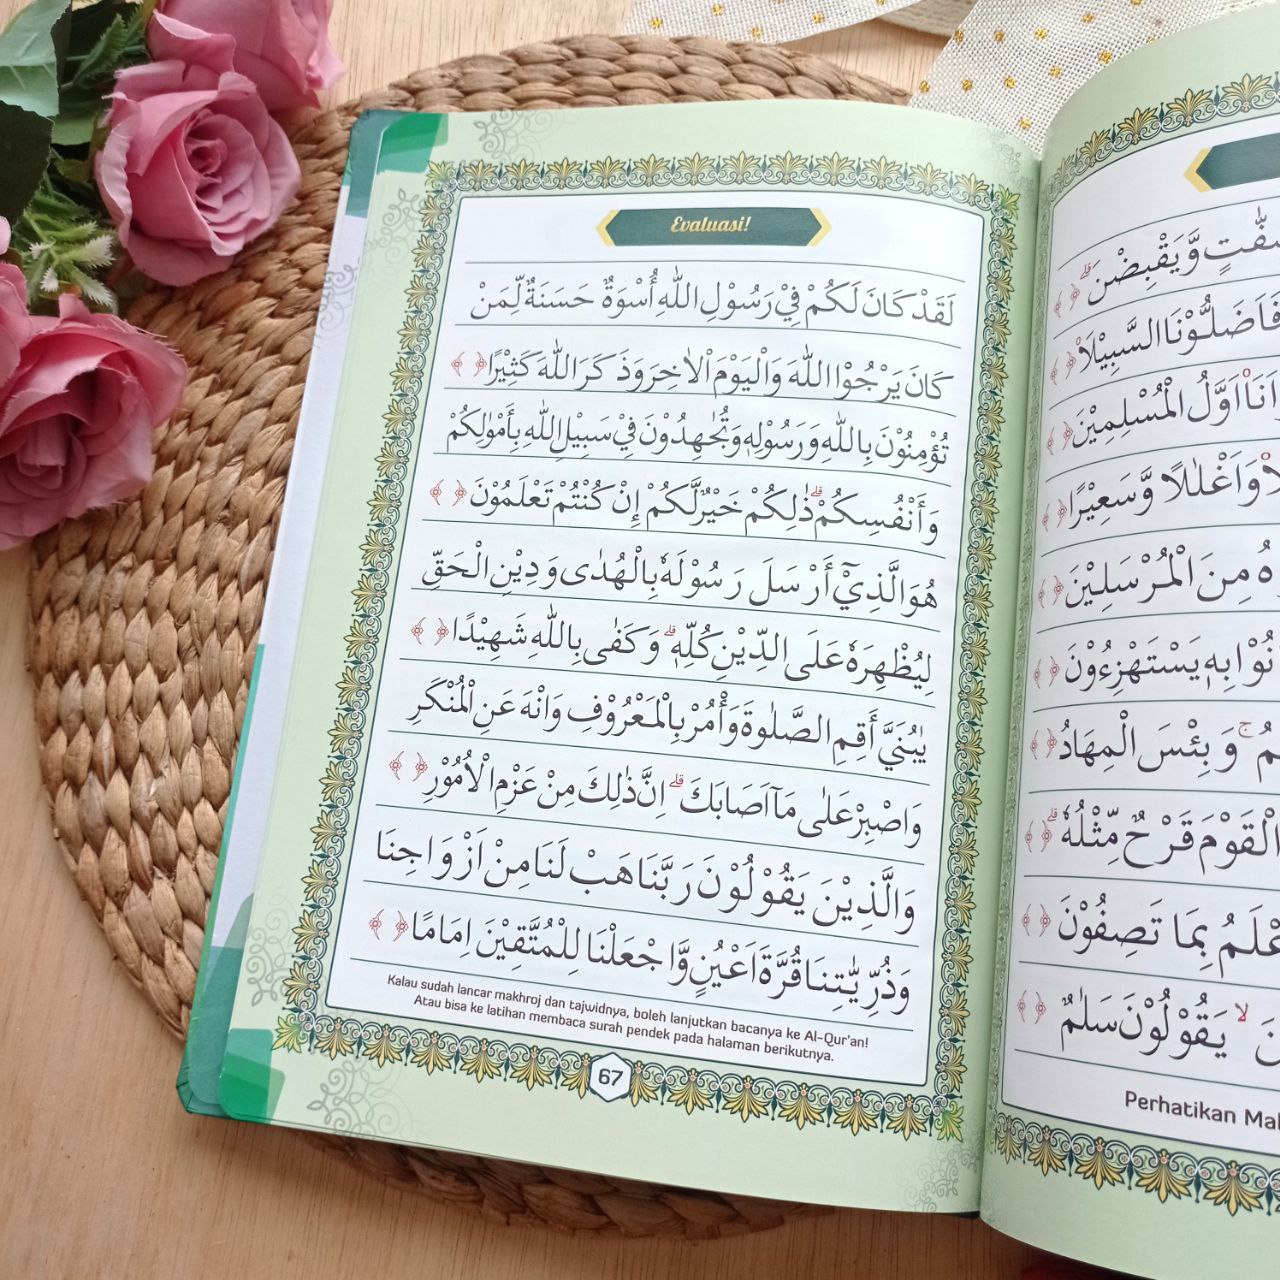 Evaluasi!
لَقَدْ كَانَ لَكُمْ فِيْ رَسُوْلِ اللّٰهِ أُسْوَةٌ حَسَنَةٌ لِّمَنْ
كَانَ يَرْجُوْا اللّٰهَ وَالْيَوْمَ الْاٰخِرَ وَذَكَرَ اللّٰهَ كَثِيْرًا ﴿ ﴾
تُؤْمِنُوْنَ بِاللّٰهِ وَرَسُوْلِهٖ وَتُجٰهِدُوْنَ فِيْ سَبِيْلِ اللّٰهِ بِأَمْوٰلِكُمْ
وَأَنْفُسِكُمْ ۗ ذٰلِكُمْ خَيْرٌ لَّكُمْ إِنْ كُنْتُمْ تَعْلَمُوْنَ ﴿ ﴾
هُوَ الَّذِيْٓ أَرْسَلَ رَسُوْلَهٗ بِالْهُدٰى وَدِيْنِ الْحَقِّ
لِيُظْهِرَهٗ عَلَى الدِّيْنِ كُلِّهٖ ۗ وَكَفٰى بِاللّٰهِ شَهِيْدًا ﴿ ﴾
يٰبُنَيَّ أَقِمِ الصَّلٰوةَ وَأْمُرْ بِالْمَعْرُوْفِ وَانْهَ عَنِ الْمُنْكَرِ
وَاصْبِرْ عَلٰى مَآ اَصَابَكَ ۗ اِنَّ ذٰلِكَ مِنْ عَزْمِ الْاُمُوْرِ ﴿ ﴾
وَالَّذِيْنَ يَقُوْلُوْنَ رَبَّنَا هَبْ لَنَا مِنْ اَزْوَاجِنَا
وَذُرِّيّٰتِنَا قُرَّةَ اَعْيُنٍ وَّاجْعَلْنَا لِلْمُتَّقِيْنَ اِمَامًا ﴿ ﴾
Kalau sudah lancar makhroj dan tajwidnya, boleh lanjutkan bacanya ke Al-Qur'an!
Atau bisa ke latihan membaca surah pendek pada halaman berikutnya.
67
وَّيَقْبِضْنَ ۗ ﴿ ﴾
فَاَضَلُّوْنَا السَّبِيْلَا۠ ﴿ ﴾
اَنَا۠ اَوَّلُ الْمُسْلِمِيْنَ ﴿ ﴾
وَاَغْلٰلًا وَّسَعِيْرًا ﴿ ﴾
مِنَ الْمُرْسَلِيْنَ ﴿ ﴾
بِهٖ يَسْتَهْزِءُوْنَ ﴿ ﴾
ۚ وَبِئْسَ الْمِهَادُ ﴿ ﴾
الْقَوْمَ قَرْحٌ مِّثْلُهٗ ۗ ﴿ ﴾
بِمَا تَصِفُوْنَ ﴿ ﴾
ۙ يَقُوْلُوْنَ سَلٰمٌ ﴿ ﴾
Perhatikan